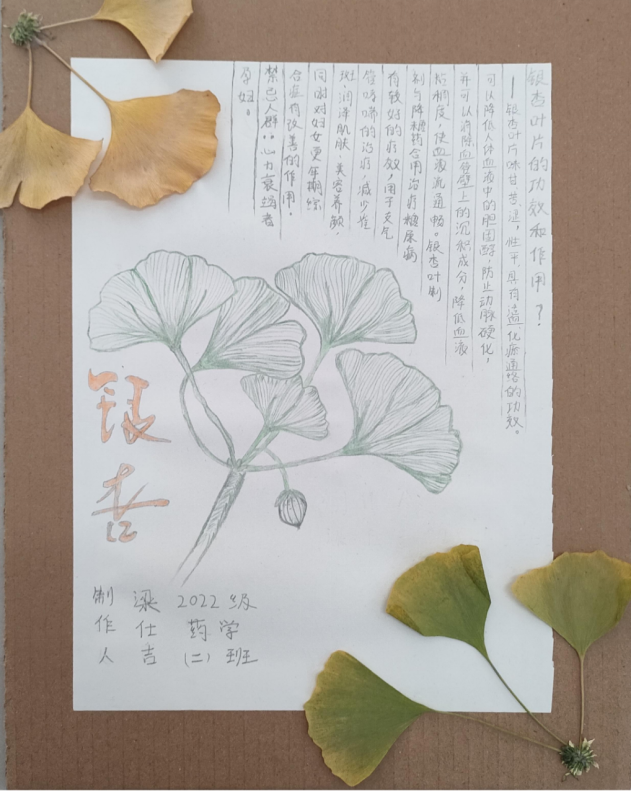 银杏叶片的功效和作用？
一银杏叶片味甘苦、涩，性平，具有活血化瘀通络的功效。
可以降低人体血液中的胆固醇，防止动脉硬化，
并可以消除血管壁上的沉积成分，降低血液
粘稠度，使血液流通畅。银杏叶制
剂与降糖药合用治疗糖尿病
有较好的疗效，用于支气
管哮喘的治疗，减少雀
斑，润泽肌肤，美容养颜，
同时对妇女更年期综
合症有改善的作用。
禁忌人群：心力衰竭者
孕妇。
银杏
制作人
梁仕吉
2022级
药学
(二)班